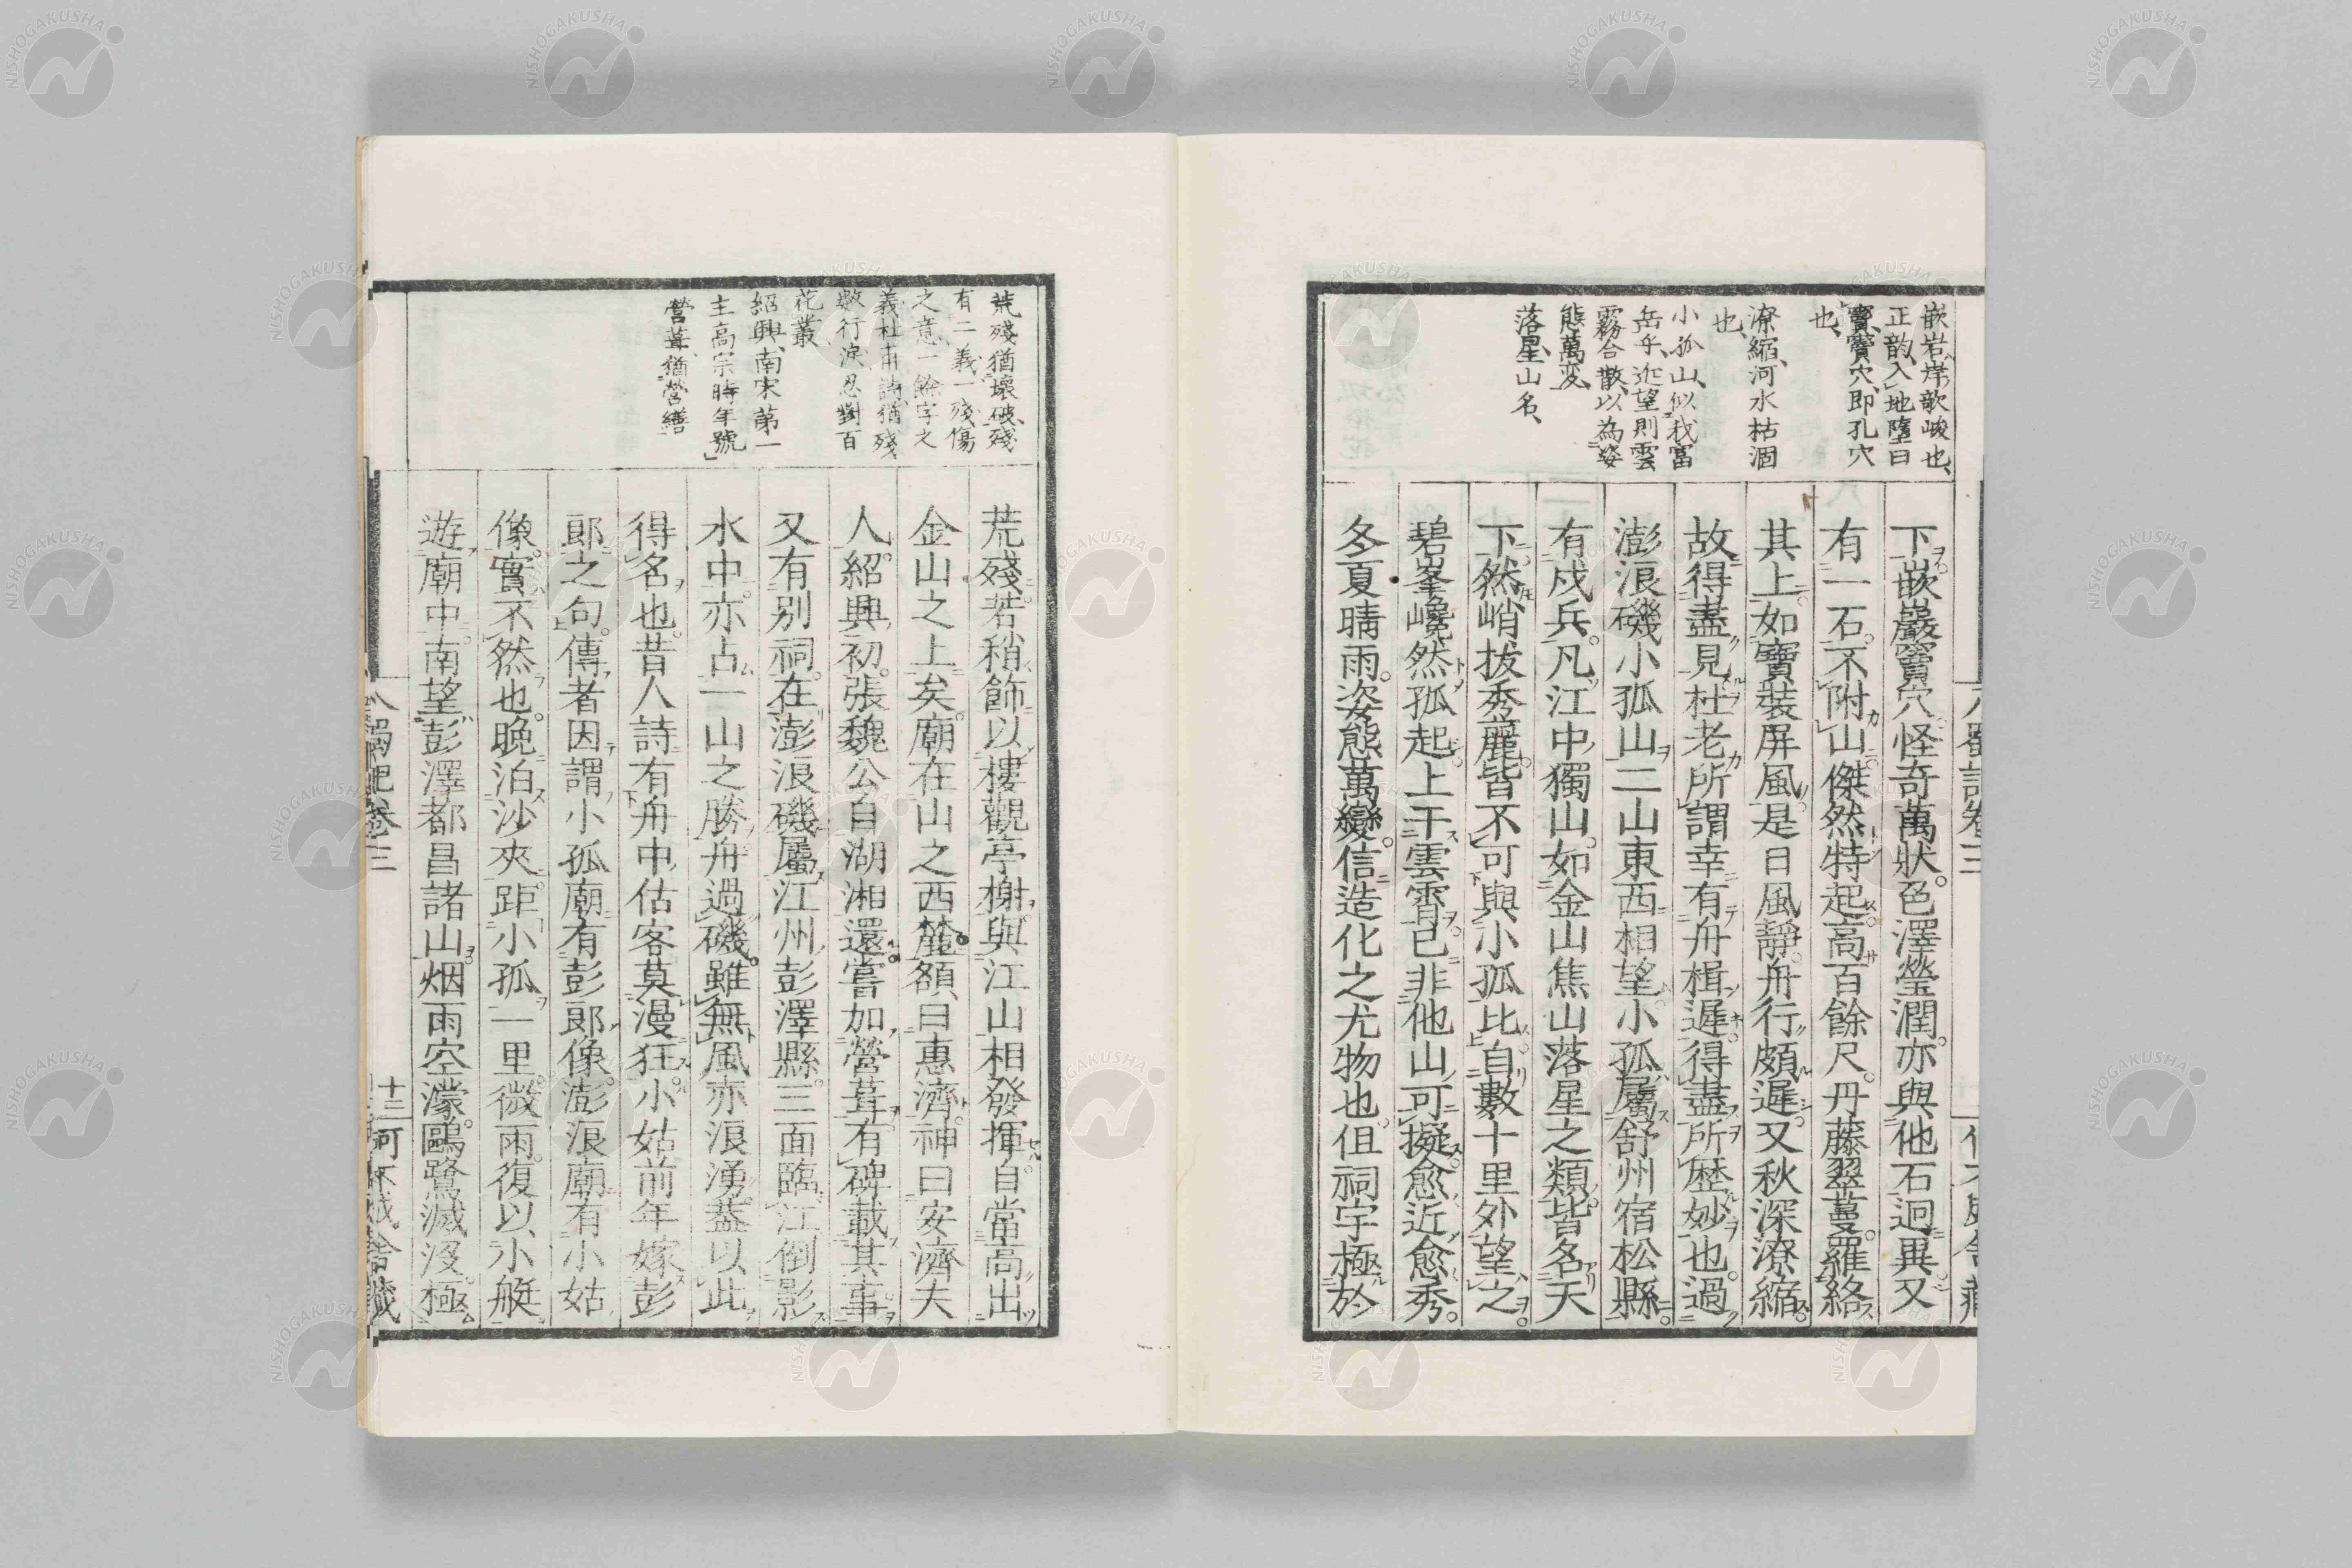 嵌岩、岸欹峻也、
正韵、入地隋曰
竇、竇穴、即孔穴
也、
潦縮、河水枯涸
也、
小孤山、似我富
岳乎、近望則雲
霧合散、以為姿
態萬変、
落星、山名、
下嵌巖竇穴怪奇萬狀。色澤瑩潤。亦與他石迥異又
有一石。不附山傑然特起。高百餘尺。丹藤翠蔓。羅絡
其上。如寶裝屏風。是日風靜。舟行頗遲。又秋深潦縮。
故得盡見杜老所謂幸有舟楫遲。得盡所歷妙也。過
澎浪磯小孤山二山東西相望。小孤屬舒州宿松縣。
有戍兵。凡江中獨山。如金山焦山落星之類。皆名天
下。然峭拔秀麗。皆不可與小孤比。自數十里外望之。
碧峯巉然孤起。上干雲霄。已非他山可擬。愈近愈秀。
冬夏晴雨。姿態萬變。信造化之尤物也。但祠宇極於
八蜀記卷三
荒殘猶壞破、殘
有二義、一殘傷
之意一餘字之
義杜甫詩、猶殘
數行淚忍對百
花叢、
紹興、南宋第一
主高宗時年號」
營葺、猶營繕
荒殘。若稍飾以樓觀亭榭。與江山相發揮。自當高出
金山之上矣。廟在山之西麓。額曰惠濟。神曰安濟夫
人。紹興初。張魏公自湖湘還。嘗加營葺。有碑載其事
又有別祠。在澎浪磯。屬江州彭澤縣。三面臨江倒影
水中。亦占一山之勝。舟過磯。雖無風亦浪湧。蓋以此
得名也。昔人詩有舟中估客莫漫狂。小姑前年嫁彭
郎之句。傳者因謂小孤廟有彭郎像。澎浪廟有小姑
像。實不然也。晚泊沙夾。距小孤一里。微雨。復以小艇
遊廟中。南望彭澤都昌諸山。烟雨空濛。鷗鷺滅沒。極
入蜀記卷三
十三
何不成舎藏
NISHOGAKUSHA